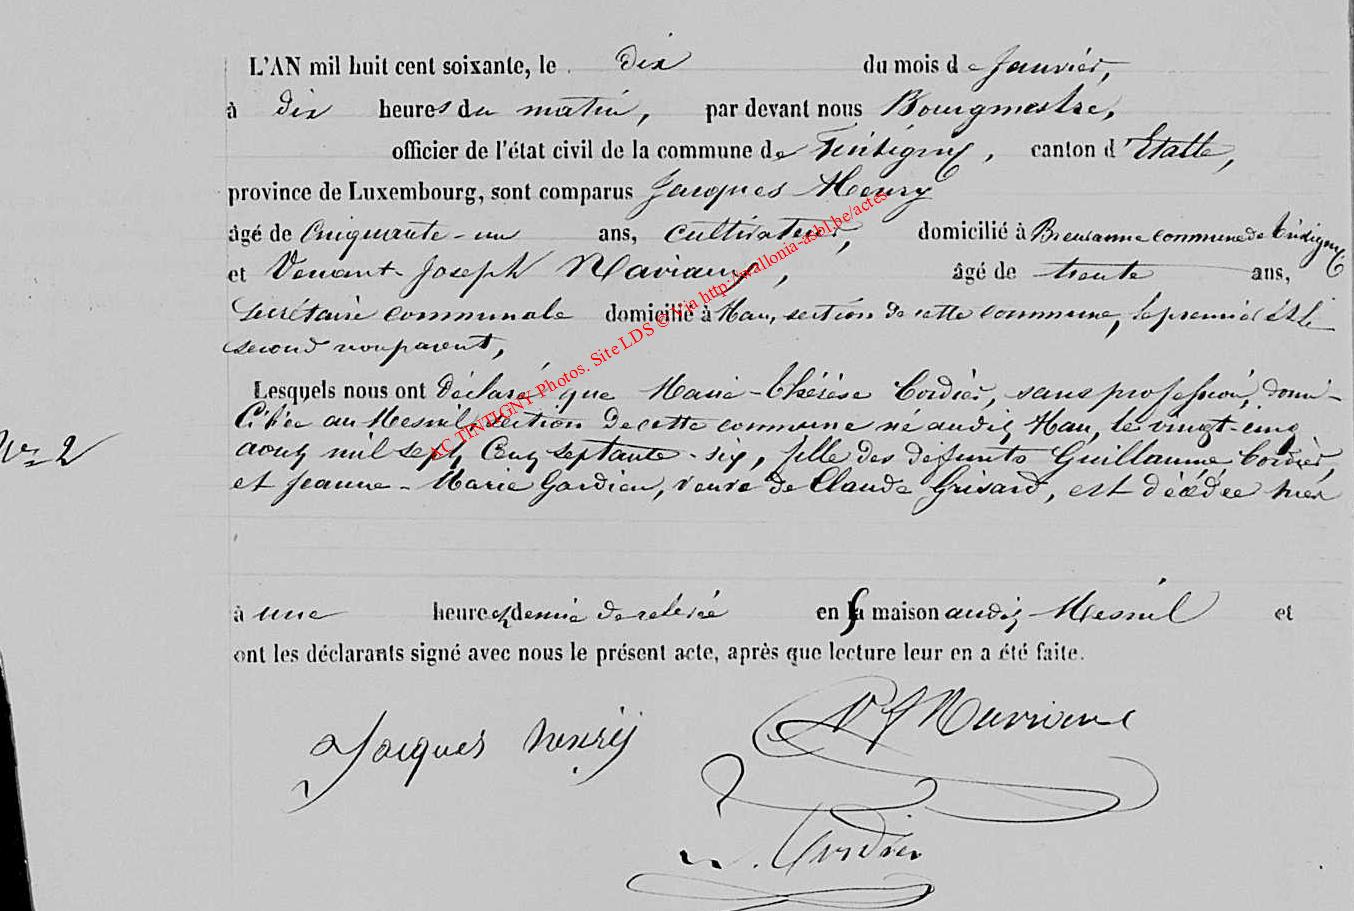 L'AN mil huit cent soixante, le dix du mois de Janvier,
à dix heures du matin, par devant nous Bourgmestre,
officier de l'état civil de la commune de Tintigny, canton d'Etalle,
province de Luxembourg, sont comparus Jacques Henry
âgé de Cinquante-un ans, cultivateur, domicilié à Breuvanne commune de tintigny
et Venant-Joseph Maviane, âgé de trente ans,
Secrétaire communale domicilié à Han, section de cette commune, le premier et le
second non parent,
Lesquels nous ont Déclaré que Marie-thérèse Cordier, sans profession, domi-
N° 2
Ciliée au Mesnil section de cette commune né audit Han, le vingt-cinq
aout mil sept Cent septante-six, fille des défunts Guillaume Cordier,
et Jeanne-Marie Gardien, veuve de Claude Grisard, est décédée hier
à une heure et demie de relevée en sa maison audit Mesnil et
ont les déclarants signé avec nous le présent acte, après que lecture leur en a été faite.
Jacques henry
VJ Maviane
Cordier
AC TINTIGNY Photos. Site LDS © Via http://wallonia-asbl.be/actes